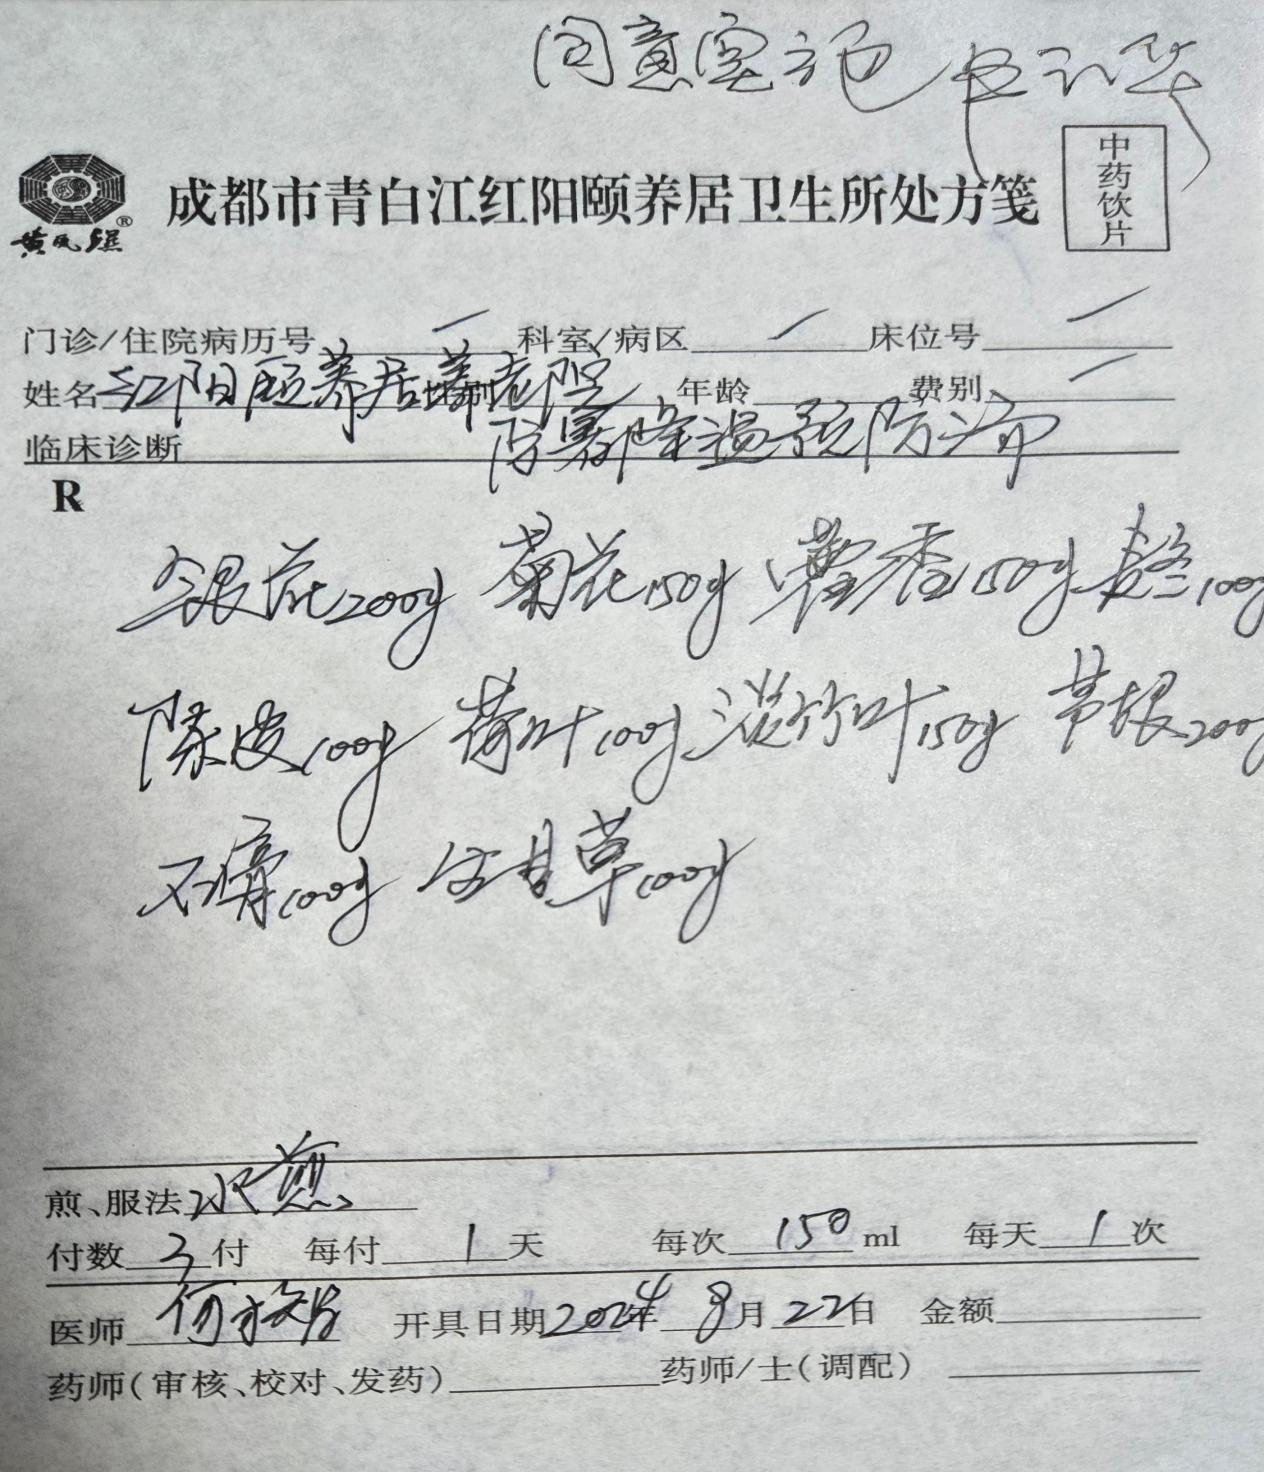 同意实施
中药饮片
黄凤跷®
成都市青白江红阳颐养居卫生所处方笺
门诊/住院病历号 科室/病区 床位号
姓名 红阳颐养居养老院 年龄 费别
临床诊断 防暑降温预防治疗
R
银花200g 菊花150g 藿香150g 100g
陈皮100g 荷叶100g 淡竹叶150g 茅根200g
石膏100g 生甘草100g
煎、服法 水煎
付数 3 付 每付 1 天 每次 150 ml 每天 1 次
医师 何 开具日期 2024年 8月 22日 金额
药师(审核、校对、发药) 药师/士(调配)